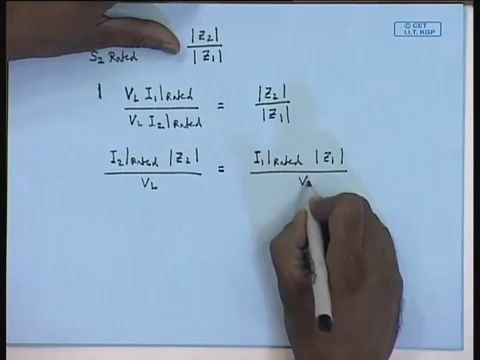 © CET
I.I.T. KGP
S₂ Rated |Z₂| / |Z₁|
V_L I₁|Rated / V_L I₂|Rated = |Z₂| / |Z₁|
I₂|Rated |Z₂| / V_L = I₁|Rated |Z₁| / V